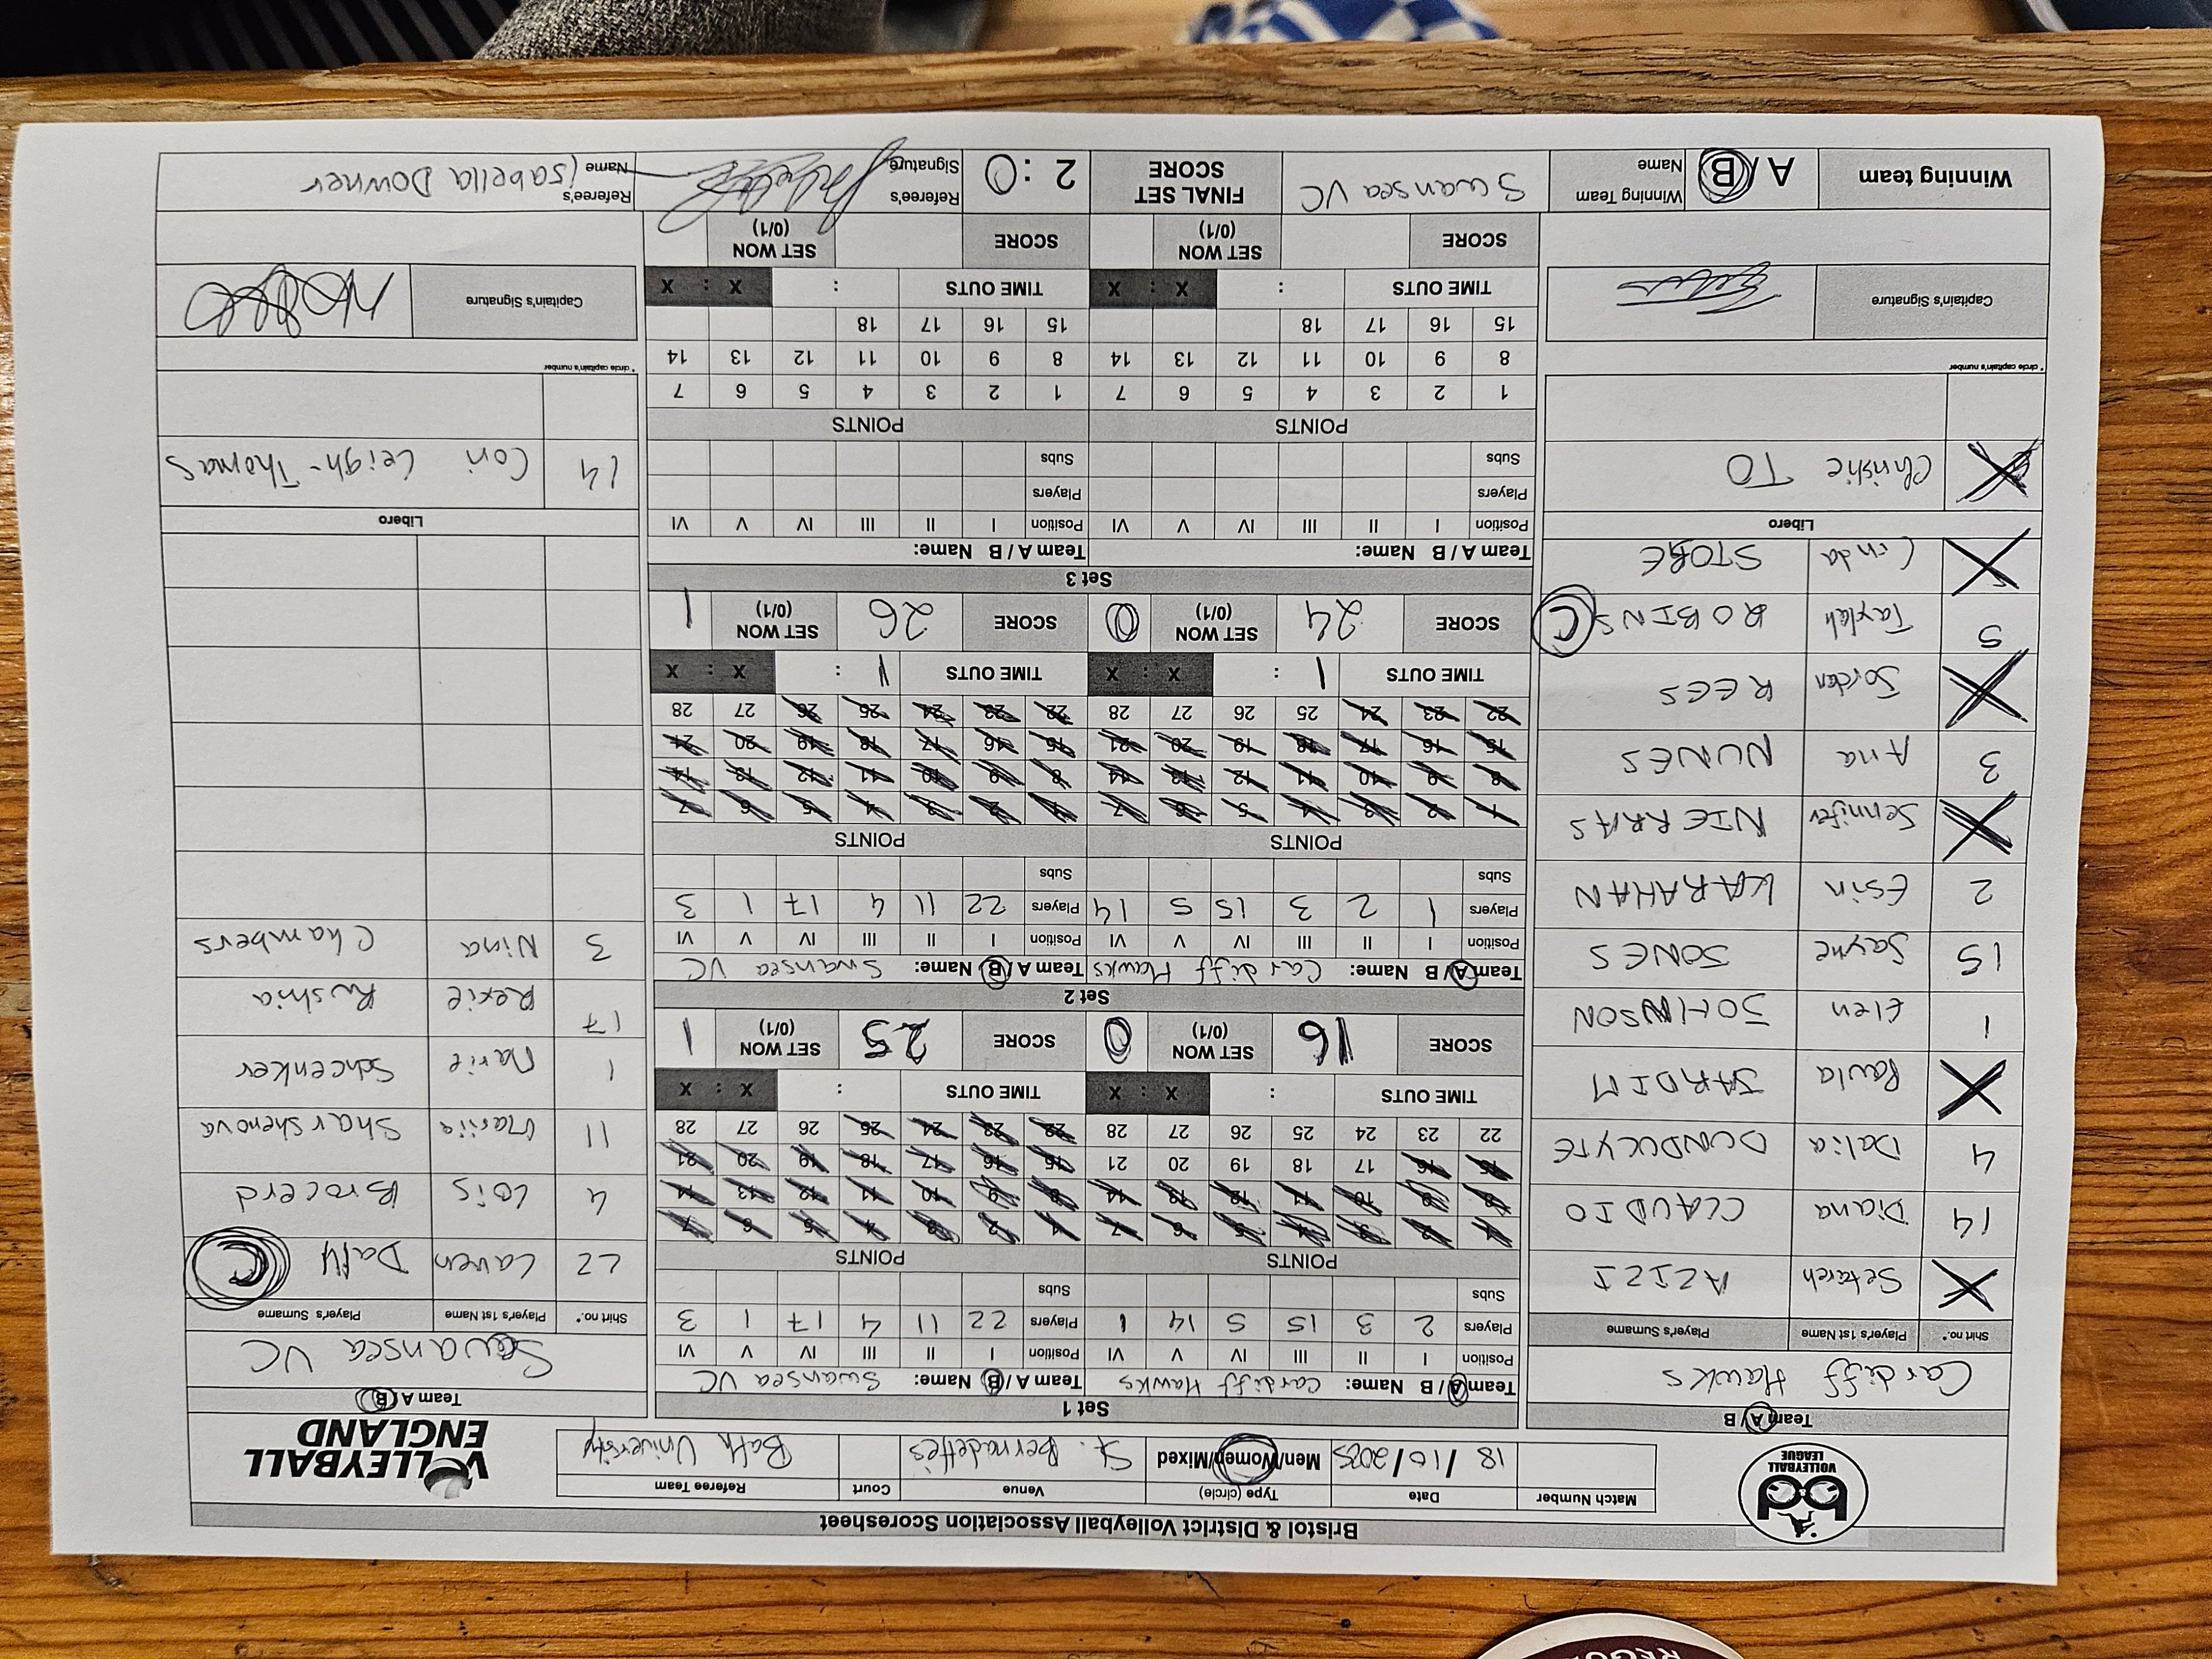 Bristol & District Volleyball Association Scoresheet
VOLLEYBALL LEAGUE
Match Number Date Type (circle) Venue Court Referee Team
18/10/2025 Men/Women/Mixed St. Bernadette's Bath University
VOLLEYBALL ENGLAND
Team A / B
Cardiff Hawks
Shirt no.* Player's 1st Name Player's Surname
Setareh AZIZI
14 Diana CLAUDIO
4 Dalia DUNDULYTE
Paula JARDIM
1 Elen JOHNSON
15 Jayne JONES
2 Esin KARAHAN
Jennifer NIERRAS
3 Ana NUNES
Jorden REES
5 Taylah ROBINS C
Linda STOBE
Libero
Christie TO
* circle capitain's number
Capitain's Signature
Set 1
Team A / B Name: Cardiff Hawks Team A / B Name: Swansea VC
Position I II III IV V VI Position I II III IV V VI
Players 2 3 15 5 14 1 Players 22 11 4 17 1 3
Subs Subs
POINTS POINTS
1 2 3 4 5 6 7 1 2 3 4 5 6 7
8 9 10 11 12 13 14 8 9 10 11 12 13 14
15 16 17 18 19 20 21 15 16 17 18 19 20 21
22 23 24 25 26 27 28 22 23 24 25 26 27 28
TIME OUTS : X : X TIME OUTS : X : X
SCORE 16 SET WON (0/1) 0 SCORE 25 SET WON (0/1) 1
Set 2
Team A / B Name: Cardiff Hawks Team A / B Name: Swansea VC
Position I II III IV V VI Position I II III IV V VI
Players 1 2 3 15 5 14 Players 22 11 4 17 1 3
Subs Subs
POINTS POINTS
1 2 3 4 5 6 7 1 2 3 4 5 6 7
8 9 10 11 12 13 14 8 9 10 11 12 13 14
15 16 17 18 19 20 21 15 16 17 18 19 20 21
22 23 24 25 26 27 28 22 23 24 25 26 27 28
TIME OUTS 1 : X : X TIME OUTS 1 : X : X
SCORE 24 SET WON (0/1) 0 SCORE 26 SET WON (0/1) 1
Set 3
Team A / B Name: Team A / B Name:
Position I II III IV V VI Position I II III IV V VI
Players Players
Subs Subs
POINTS POINTS
1 2 3 4 5 6 7 1 2 3 4 5 6 7
8 9 10 11 12 13 14 8 9 10 11 12 13 14
15 16 17 18 15 16 17 18
TIME OUTS : X : X TIME OUTS : X : X
SCORE SET WON (0/1) SCORE SET WON (0/1)
Team A / B
Swansea VC
Shirt no.* Player's 1st Name Player's Surname
22 Lauren Daly C
4 Lois Brocerd
11 Mariia Sharshenova
1 Marie Schcenker
17 Rexie Rushia
3 Nina Chambers
Libero
14 Cori Leigh-Thomas
* circle capitain's number
Capitain's Signature
Winning team A / B Winning Team Name Swansea VC FINAL SET SCORE 2:0 Referee's Signature Referee's Name Isabella Downer